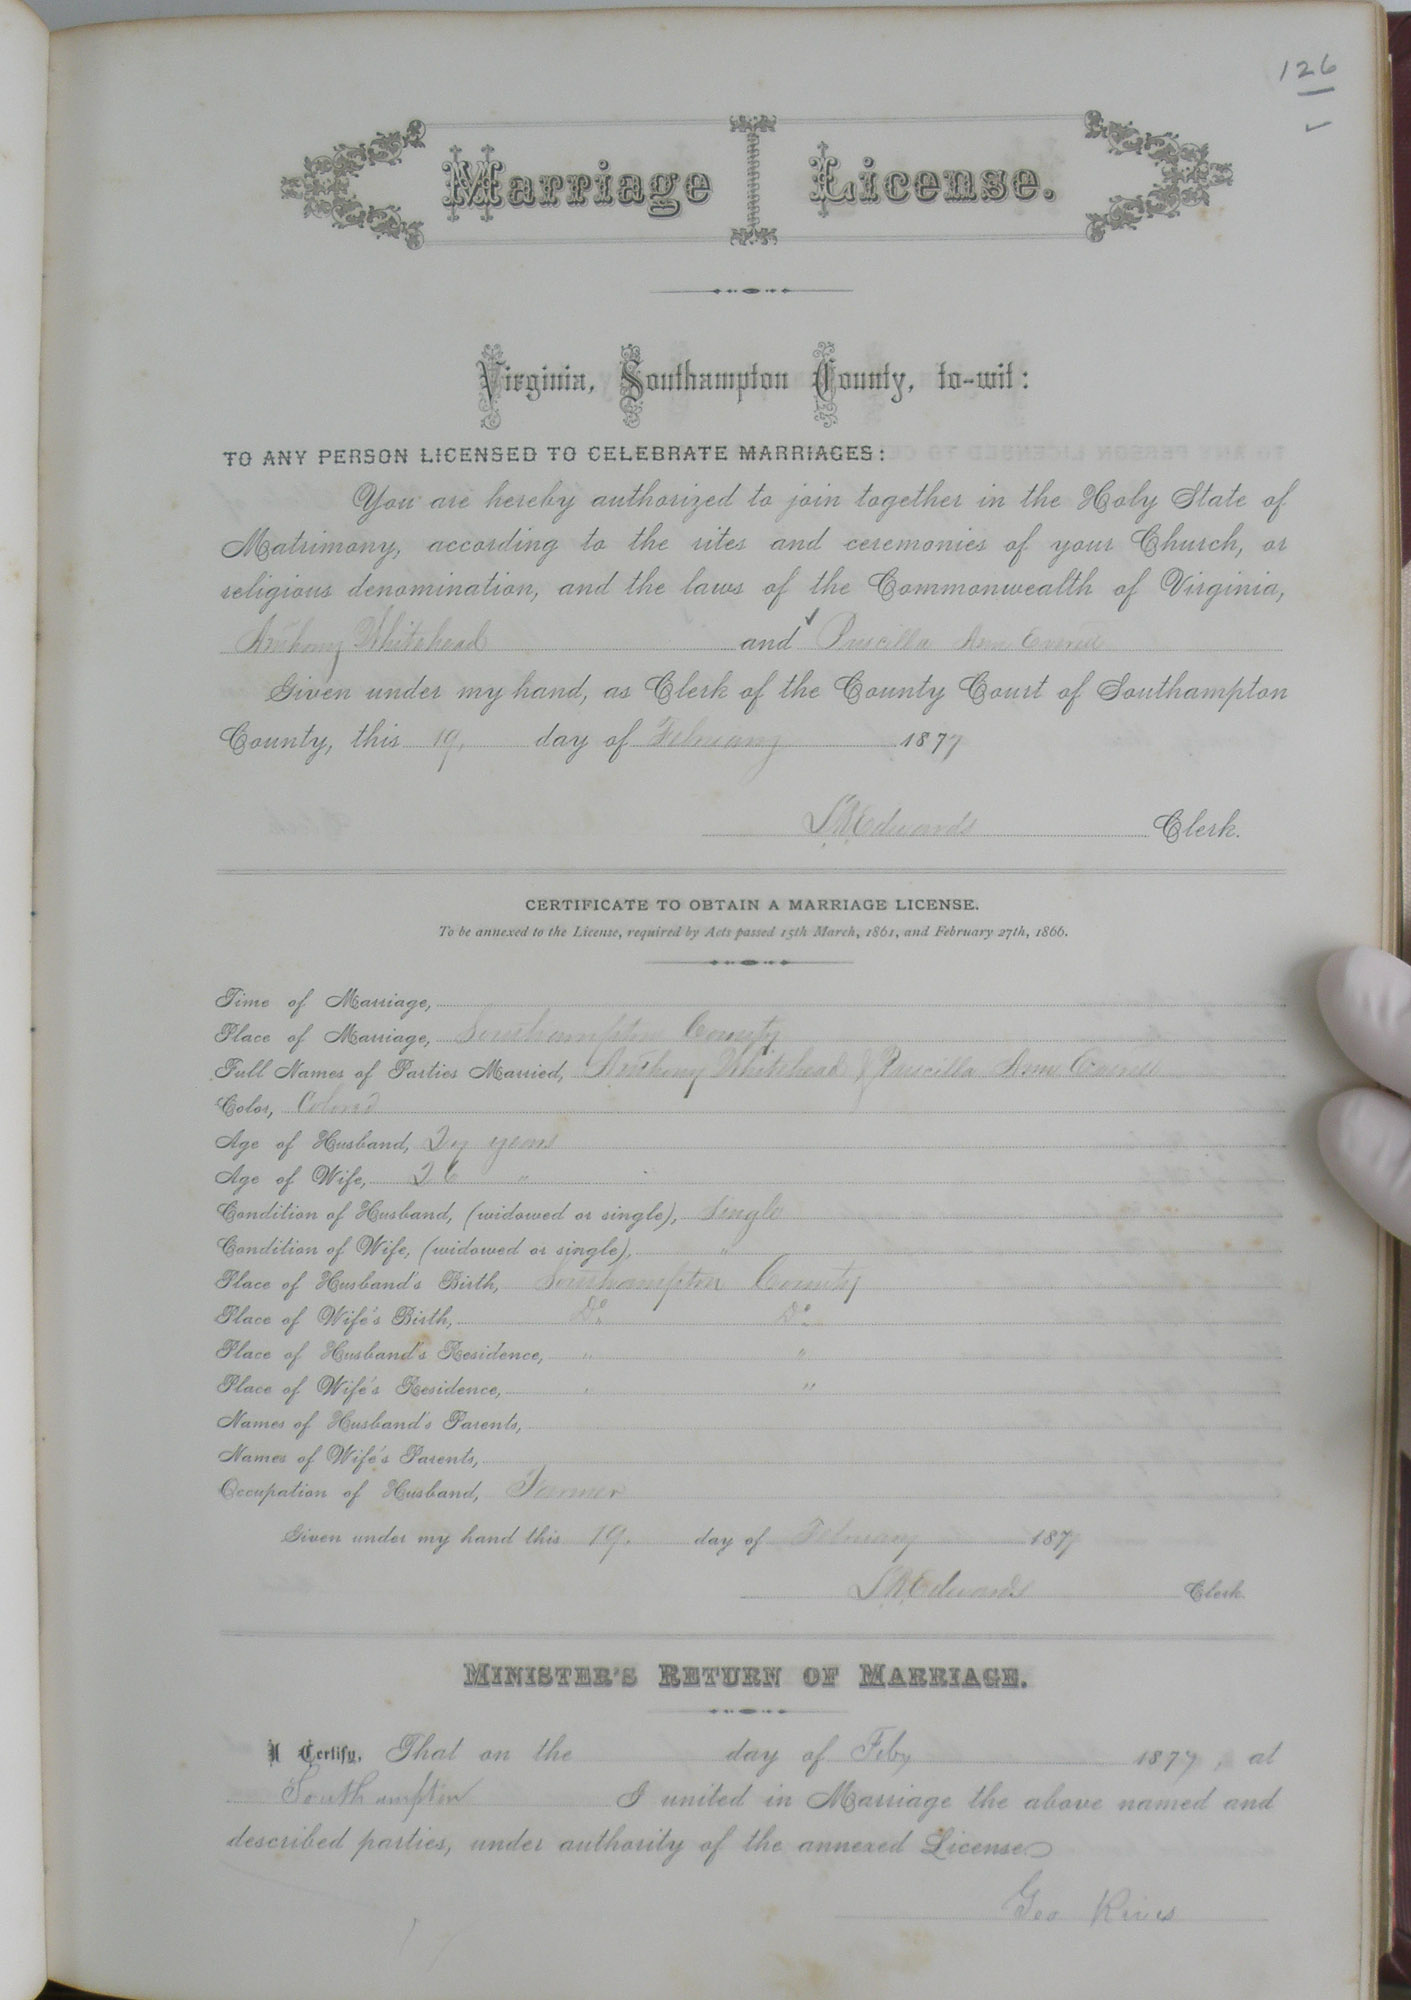 126
Marriage License.
Virginia, Southampton County, to-wit:
TO ANY PERSON LICENSED TO CELEBRATE MARRIAGES:
You are hereby authorized to join together in the Holy State of
Matrimony, according to the rites and ceremonies of your Church, or
religious denomination, and the laws of the Commonwealth of Virginia,
Anthony Whitehead and Priscilla Ann Everett
Given under my hand, as Clerk of the County Court of Southampton
County, this 19. day of February 1877
L.R. Edwards Clerk.
CERTIFICATE TO OBTAIN A MARRIAGE LICENSE.
To be annexed to the License, required by Acts passed 15th March, 1861, and February 27th, 1866.
Time of Marriage,
Place of Marriage, Southampton County
Full Names of Parties Married, Anthony Whitehead & Priscilla Ann Everett
Color, Colored
Age of Husband, 27 years
Age of Wife, 26 "
Condition of Husband, (widowed or single), Single
Condition of Wife, (widowed or single), "
Place of Husband's Birth, Southampton County
Place of Wife's Birth, Do. Do.
Place of Husband's Residence, " "
Place of Wife's Residence, " "
Names of Husband's Parents,
Names of Wife's Parents,
Occupation of Husband, Farmer
Given under my hand this 19. day of February 1877
L.R. Edwards Clerk.
MINISTER'S RETURN OF MARRIAGE.
I Certify, That on the day of Feby 1877, at
Southampton I united in Marriage the above named and
described parties, under authority of the annexed License
Geo Rives